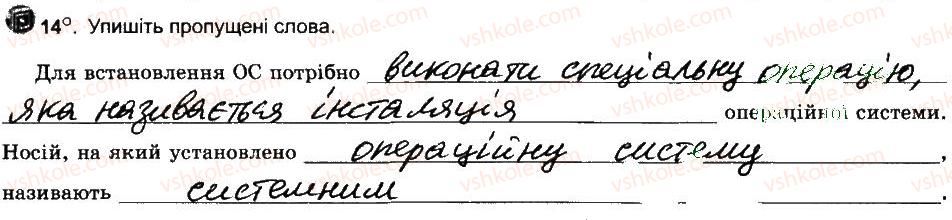 14°. Упишіть пропущені слова.
Для встановлення ОС потрібно виконати спеціальну операцію,
яка називається інсталяція операційної системи.
Носій, на який установлено операційну систему,
називають системним.